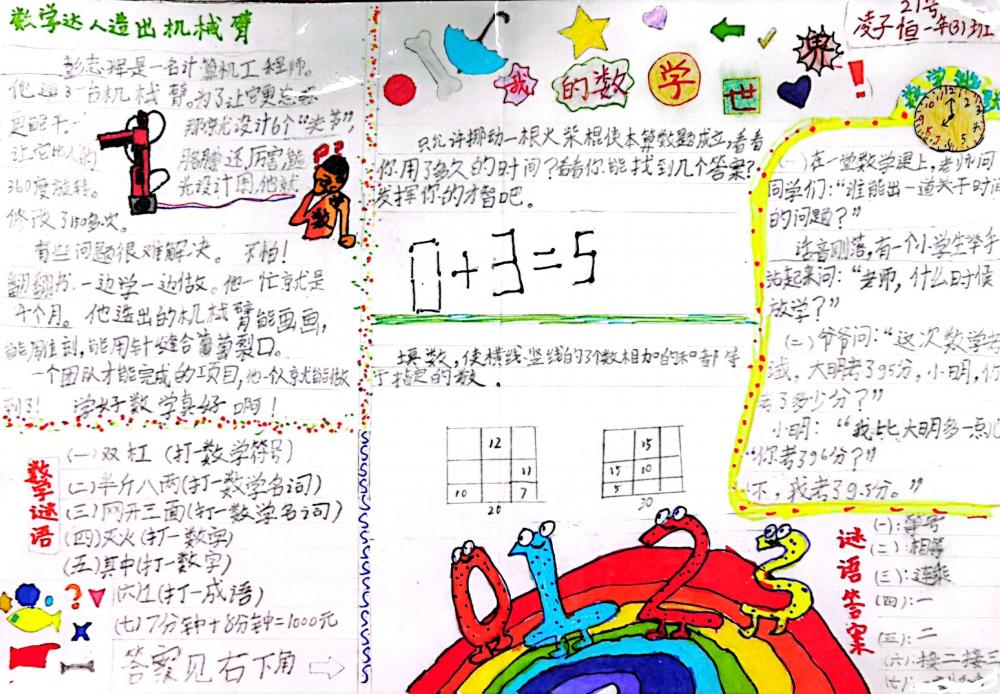 数学达人造出机械臂
彭志辉是一名计算机工程师。
他造了一台机械臂。为了让它更
更能干,
那
设计6个“关节”,
让它比人的
胳膊还厉害,能
360度旋转。
光设计图,他就
修改了150多次。
有些问题很难解决。不怕!
翻翻书,一边学一边做。他一忙就是
个月。他造出的机械臂能画画,
能用针缝合葡萄裂口。
一个团队才能完成的项目,他一个人就能做
到了!学好数学真好啊!
数学谜语
(一)双杠(打一数学符号)
(二)半斤八两(打一数学名词)
(三)网开三面(打一数学名词)
(四)灭火(打一数字)
(五)其中(打一数字)
(六)1(打一成语)
(七)7分钟+8分钟=1000元
答案见右下角
我的数学世界
只允许挪动一根火柴棍使本算数题成立,看看
你用了多久的时间?看看你能找到几个答案?
发挥你的才智吧。
0+3=5
填数,使横线竖线的3个数相加的和都等
于指定的数。
12
11
10 7
20
15
15 10
5
30
0 1 2 3
21号
凌子恒 一年(3)班
数学
(一)在一堂数学课上,老师问
同学们:“谁能出一道关于时间
的问题?”
话音刚落,有一个小学生举手
站起来问:“老师,什么时候
放学?”
(二)爷爷问:“这次数学考
试,大明考了95分,小明,你
考了多少分?”
小明:“我比大明多一点儿
“你考了96分?”
“不,我考了9.5分。”
谜语答案
(一):等号
(二):相等
(三):连乘
(四):一
(五):二
(六):接二接三